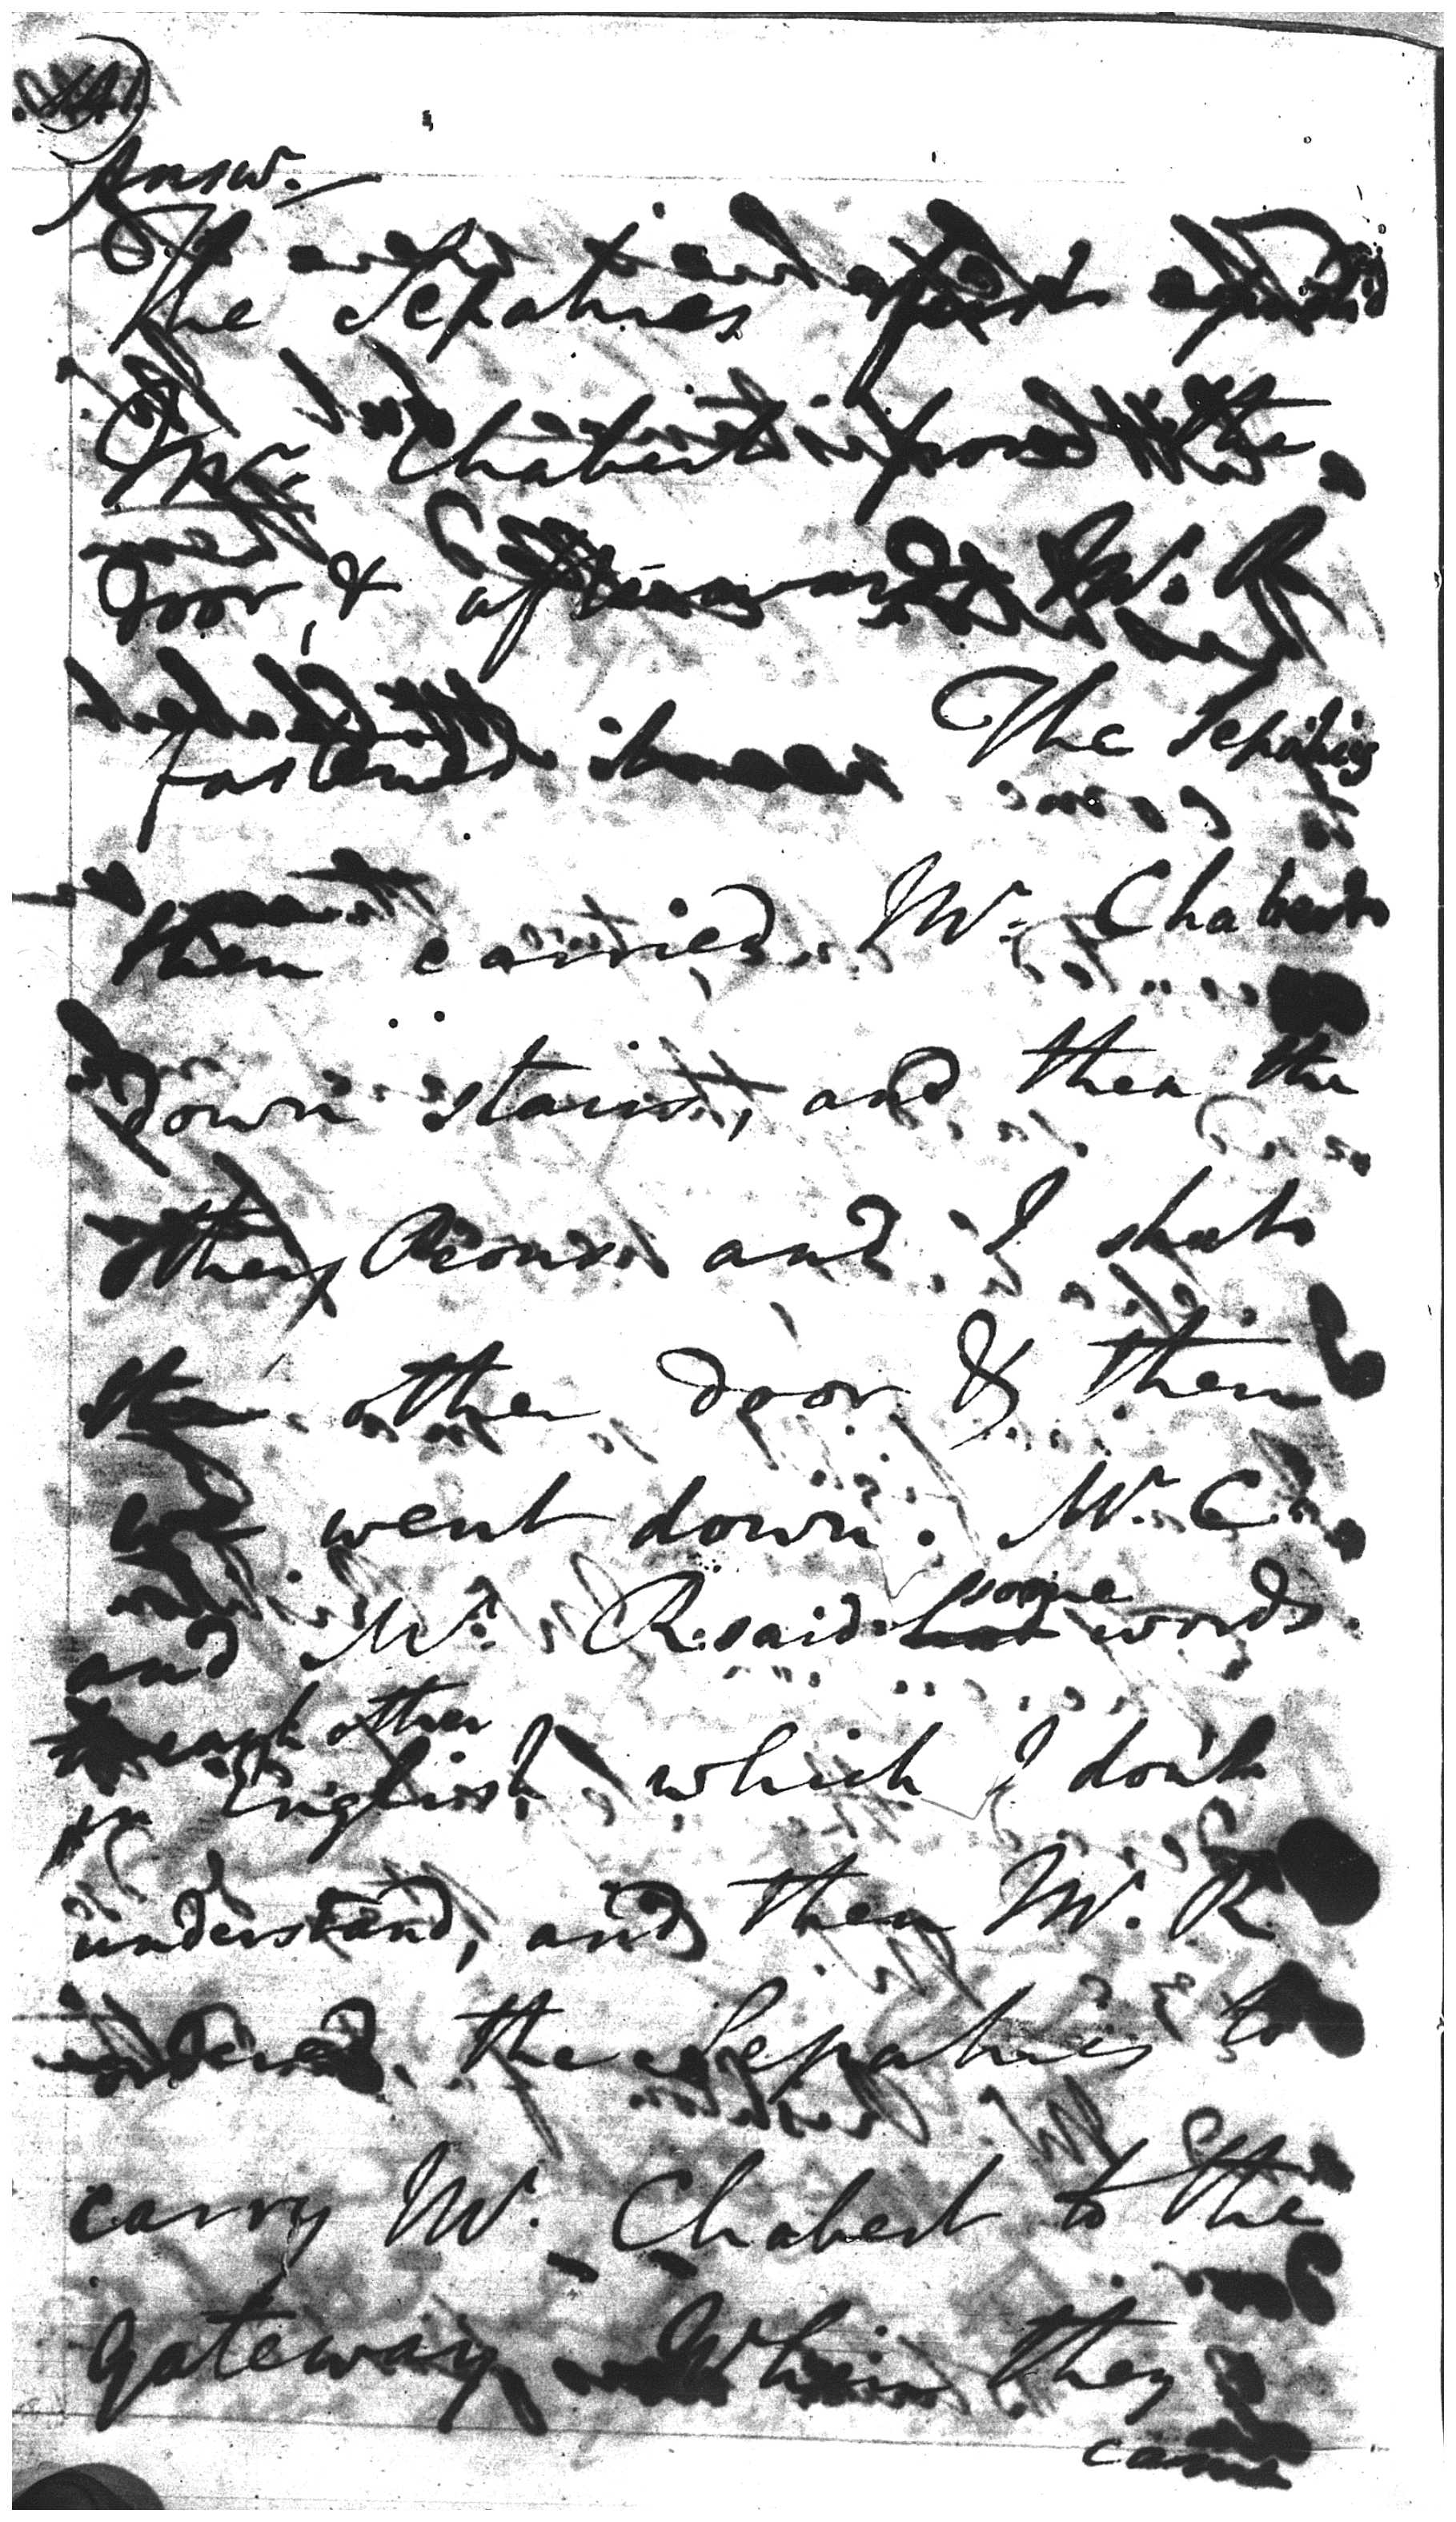 Answ.
The Sepahies
Mr. Chabert the
door, & afterwards Mr. R
fastened it The Sepahies
then carried Mr. Chabert
down stairs, and then the
other Peons and I shut
the other door & then
we went down. Mr. C.
and Mr. R. said some words
to each other
in English which I don't
understand, and then Mr. R.
ordered the Sepahies to
carry Mr. Chabert to the
gateway When they
came